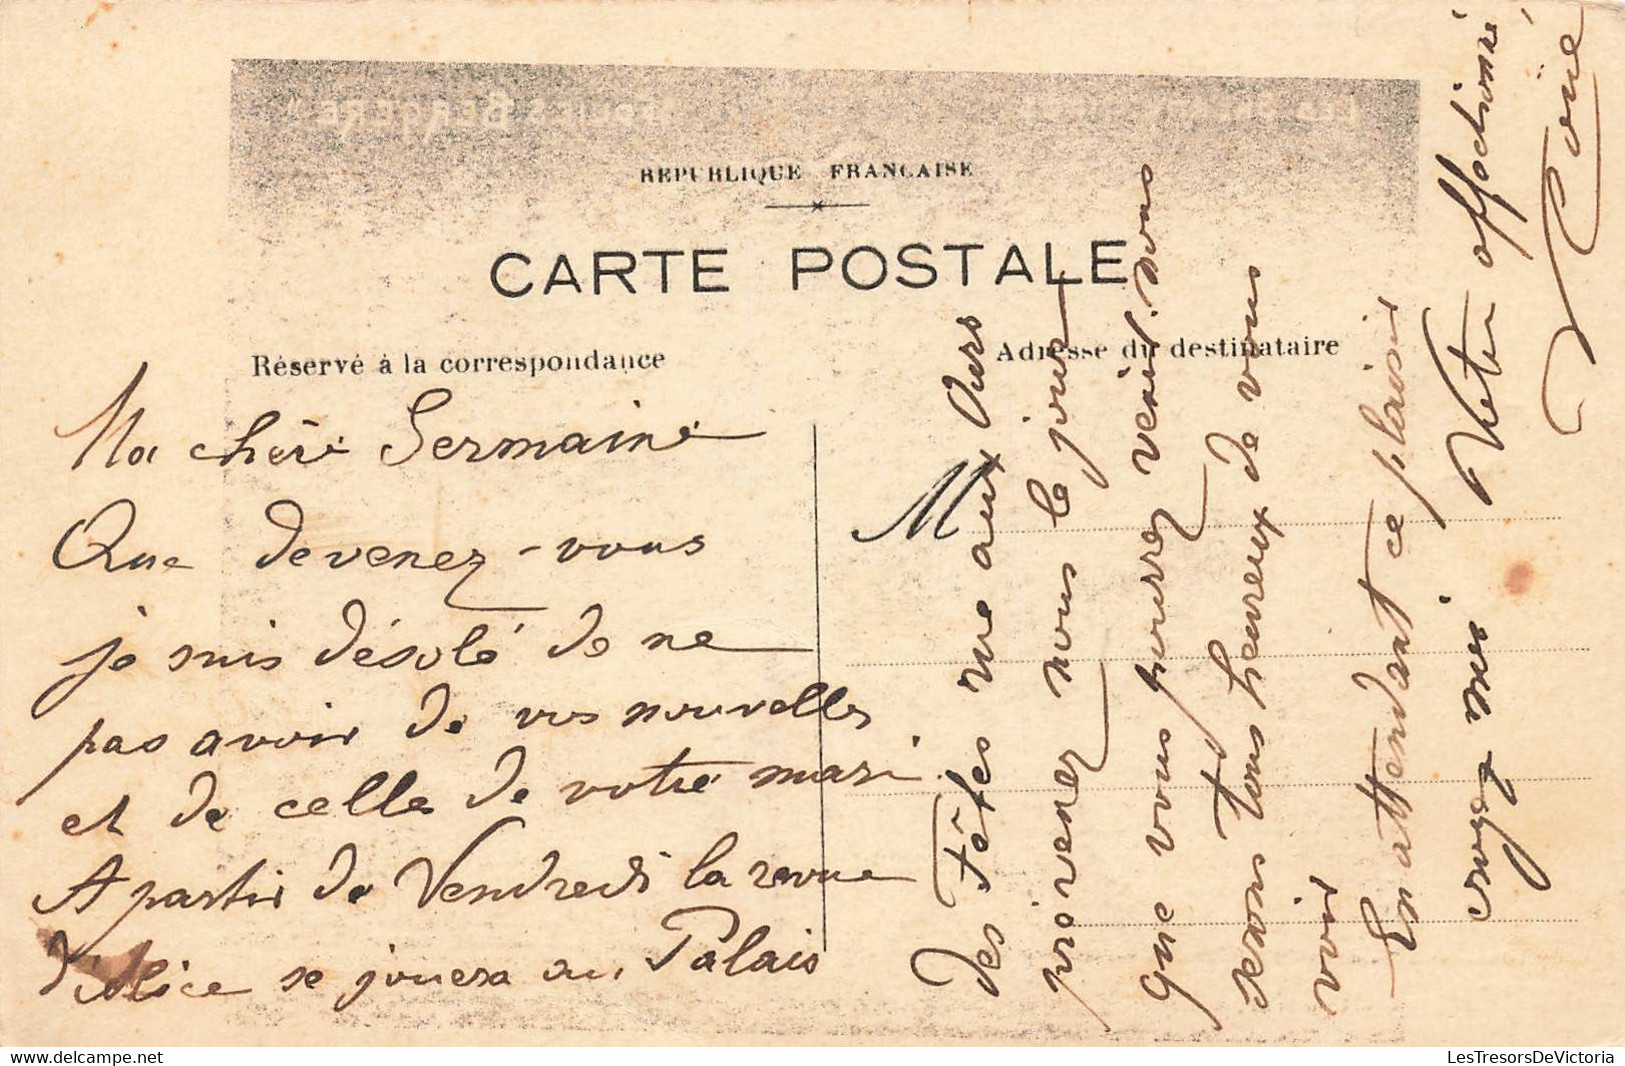 REPUBLIQUE FRANÇAISE
CARTE POSTALE
Réservé à la correspondance
Adresse du destinataire
Ma chère Germaine
Que devenez-vous
je suis désolé de ne
pas avoir de vos nouvelles
et de celle de votre mari.
A partir de Vendredi la revue
d'Alice se jouera au Palais
M
des Fêtes rue aux Ours
prévenez nous le jour
que vous pourrez venir. nous
serons tous heureux de vous
voir
En attendant ce plaisir
croyez moi Votre affectionné
LesTresorsDeVictoria.com